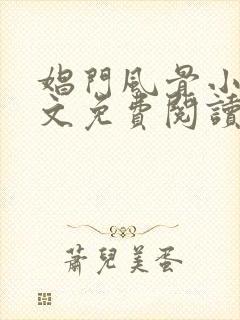 娼門風骨小
文免費閱讀
蕭兒美蛋